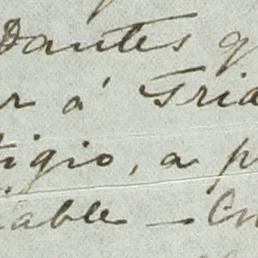 dantes q
r á Tria
tigio, a p
iable — En